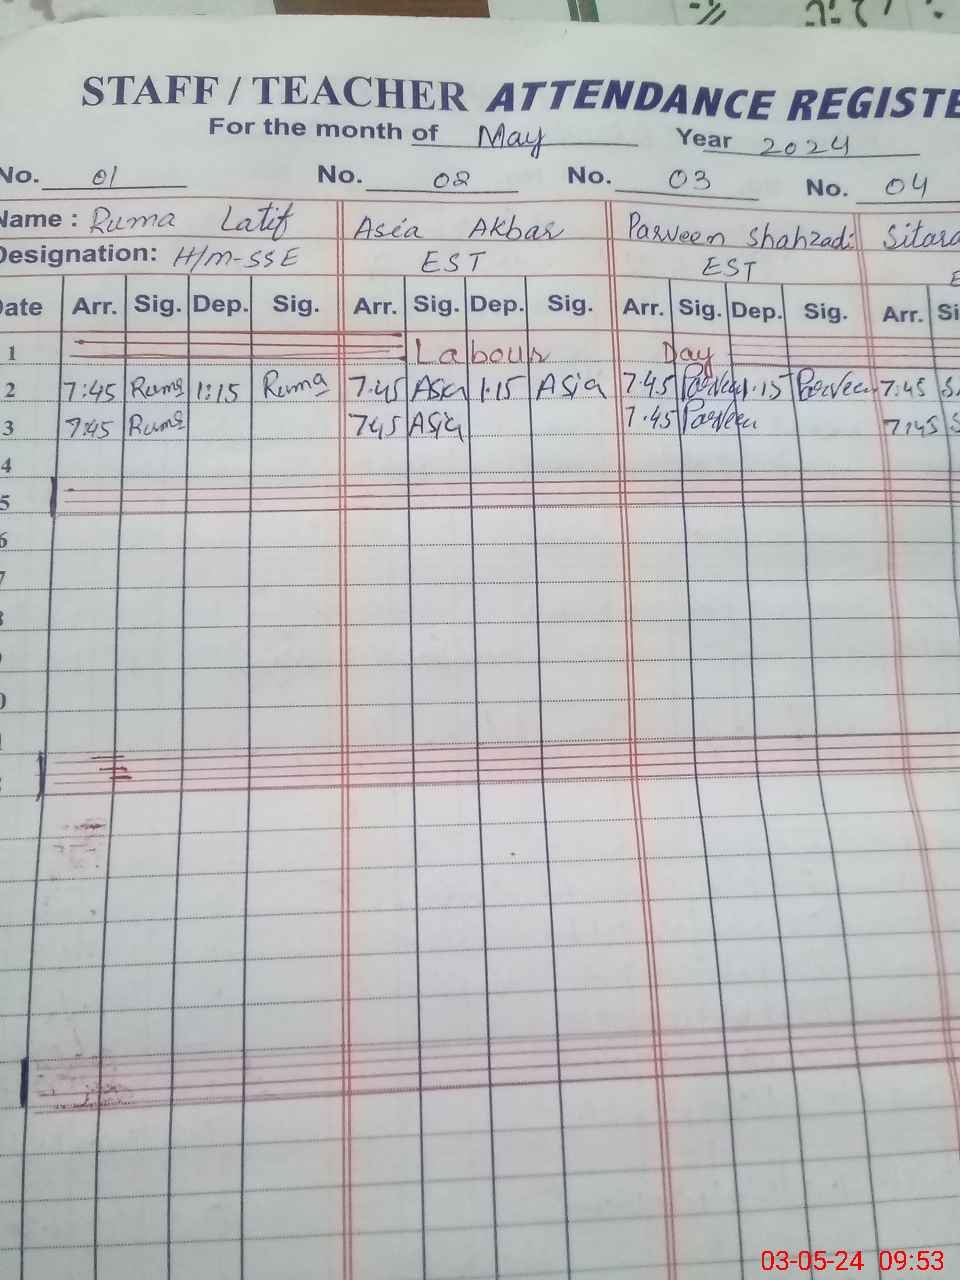 STAFF / TEACHER ATTENDANCE REGISTE
For the month of May Year 2024
No. 01 No. 02 No. 03 No. 04
Name : Ruma Latif Asia Akbar Parveen Shahzadi Sitara
Designation: H/M-SSE EST EST
Date Arr. Sig. Dep. Sig. Arr. Sig. Dep. Sig. Arr. Sig. Dep. Sig. Arr. Si
1 Labour Day
2 7:45 Ruma 1:15 Ruma 7:45 Asia 1:15 Asia 7:45 Parveen 1:15 Parveen 7:45
3 7:45 Ruma 745 Asia 7:45 Parveen 7:45
4
5
6
7
8
03-05-24 09:53